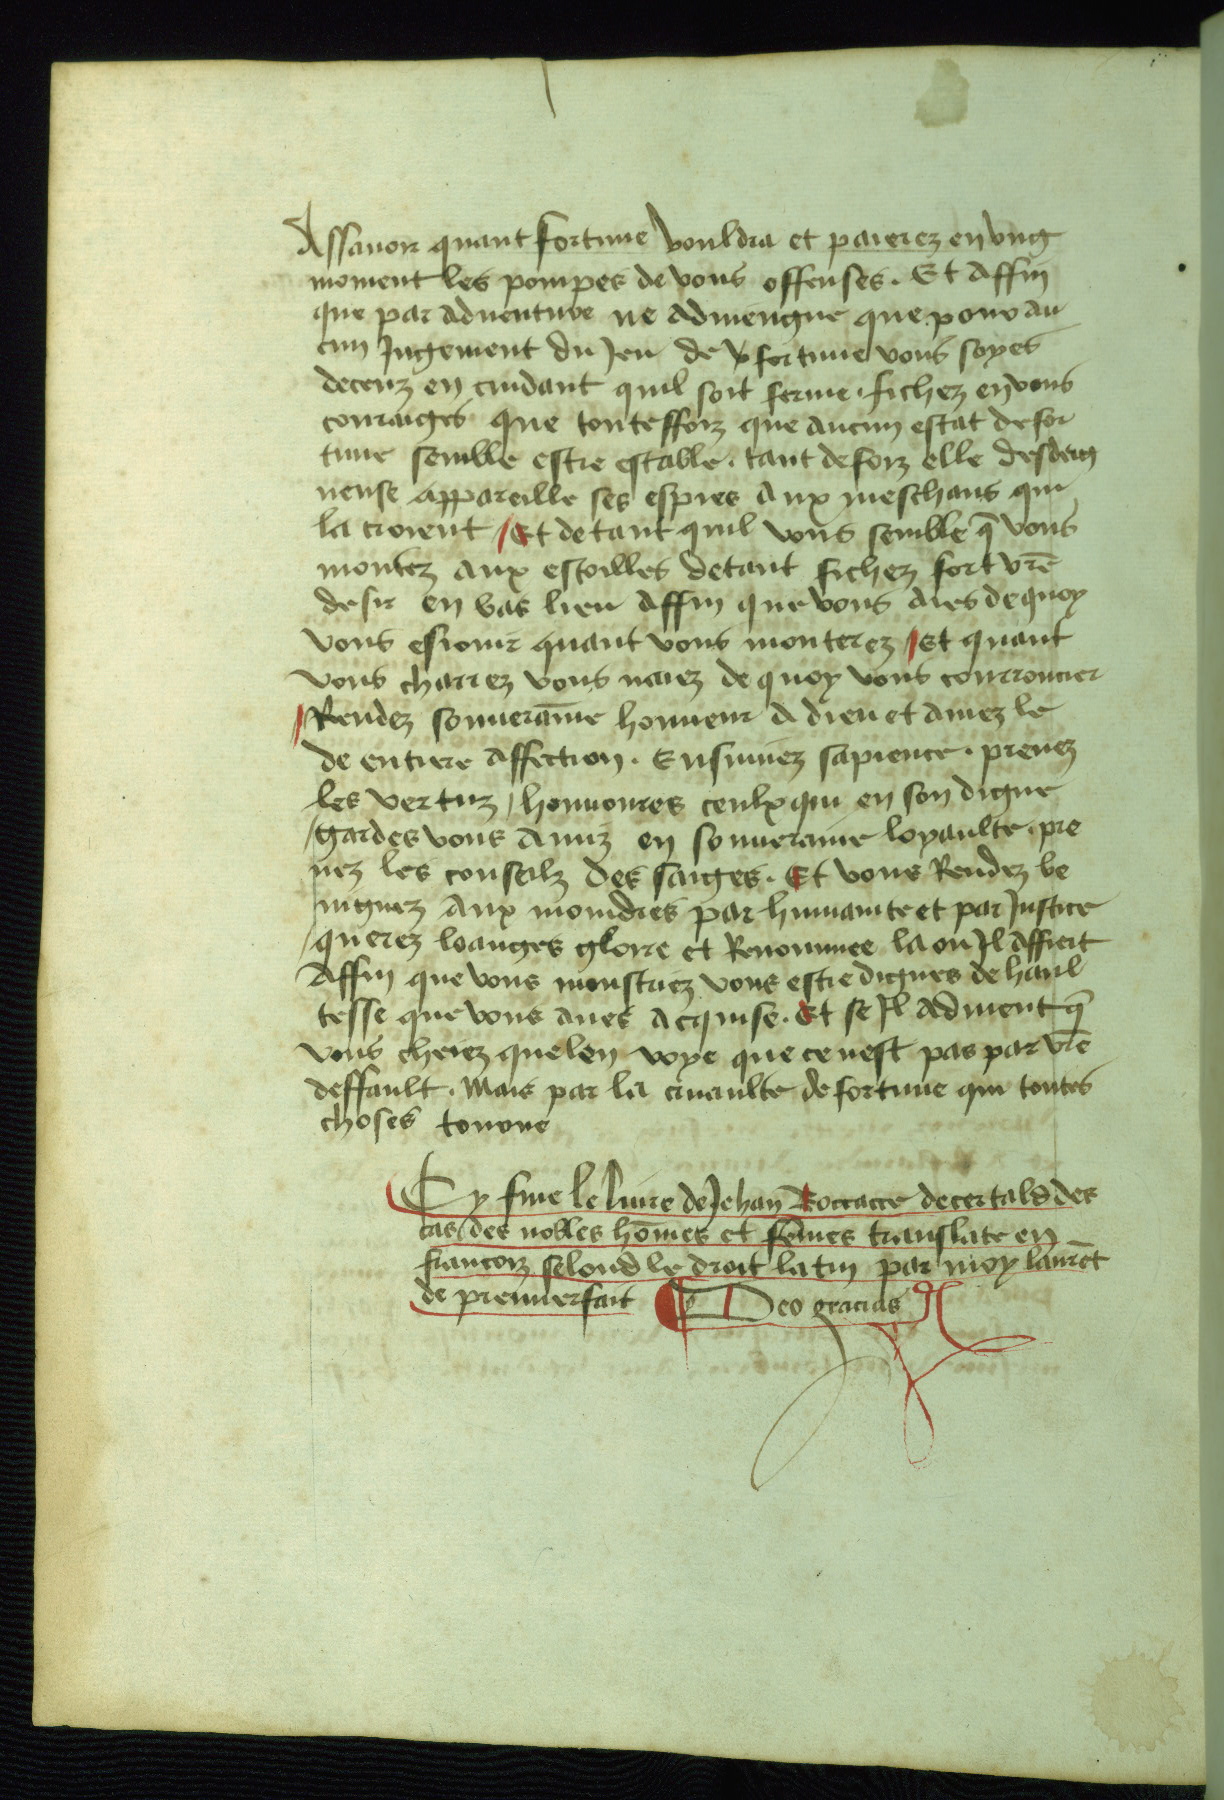 Assauoir quant fortune vouldra et paierez en vng
moment les pompes de vous offenses. Et affin
que par aduenture ne aduiengne que pour au
cun Jugement du Jeu de fortune vous soyes
deceuz en cuidant quil soit ferme. fichez en vous
couraiges que touteffoiz que aucun estat de for
tune semble estre estable. tant de foiz elle desdeig
neuse appareille ses espies aux meschans qui
la croient / Et de tant quil vous semble q̄ vous
montez aux estoilles de tant fichez fort vr̄e
desir en bas lieu affin que vous aies de quoy
vous esiouir quant vous monterez / Et quant
vous charrez vous naiez de quoy vous courroucier
/ Rendez souuerāine honneur a dieu et amez le
de entiere affection. Ensuiuez sapience. prenez
les vertuz / honnoures ceulx qui en son digne
/ gardes vous amiz en souueraine loyaulte. pre
nez les conseilz des saiges. Et vous Rendez be
nignez aux moindres par humanite et par Justice
/ querez loanges gloire et Renommee la ou Jl affiert
Affin que vous monstriez vous estre dignes de haul
tesse que vous aues acquise. Et se Jl aduient q̄
vous cheiez que len voye que ce nest pas par vr̄e
deffault. Mais par la cruaulte de fortune qui toutes
choses tourne
Cy fine le liure de Jehan Boccacce de certald des
cas des nobles hōmes et fēmes translate en
francoiz selond le droit latin par moy laurēt
de premierfait Deo gracias